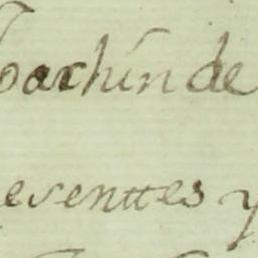 Joachin de
esenttes y